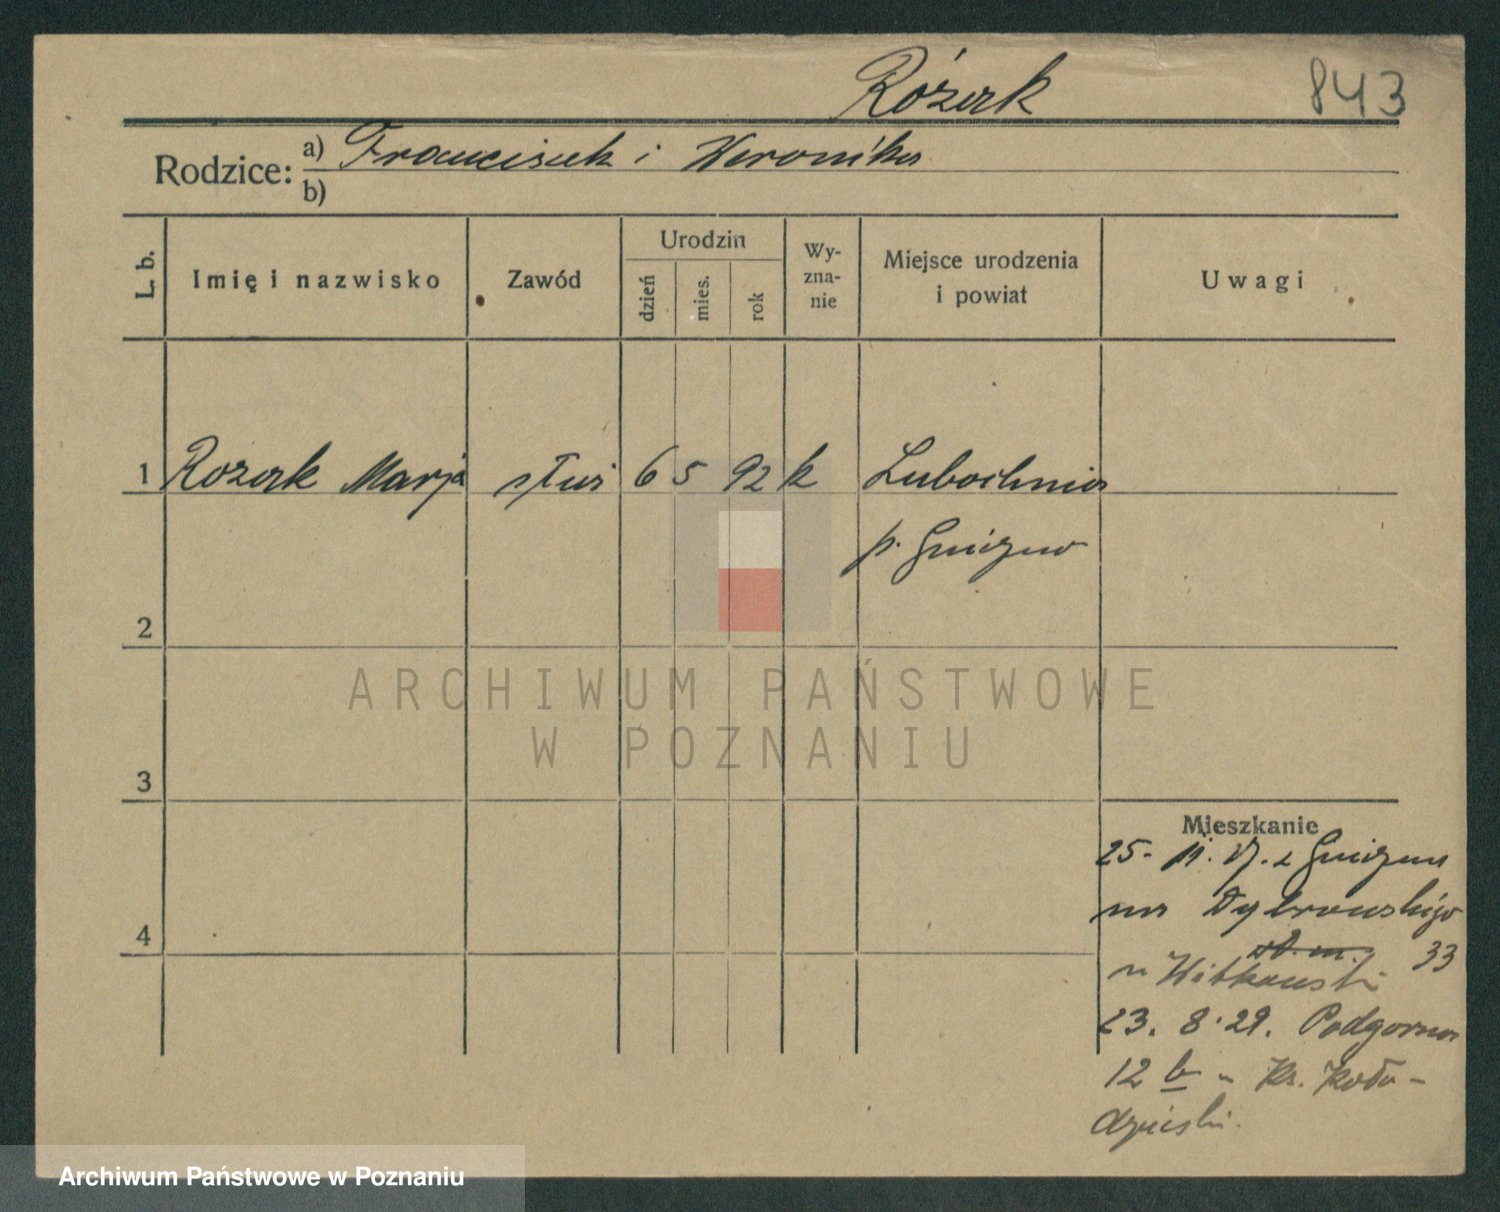 Różak 843
Rodzice: a) Franciszek i Weronika
b)
L. b. Imię i nazwisko Zawód Urodzin dzień mies. rok Wy-zna-nie Miejsce urodzenia i powiat Uwagi
1 Rozak Marja służ 6 5 92 k Lubochnia
p. Gniezno
2
ARCHIWUM PAŃSTWOWE
W POZNANIU
3
Mieszkanie
25. 11. z Gniezna
na Dąbrowskiego
4
33
u Witkowski
23. 8. 29. Podgorna
12 b u Ks. Koło-
dziejski.
Archiwum Państwowe w Poznaniu